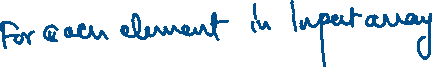 For each element in Input array